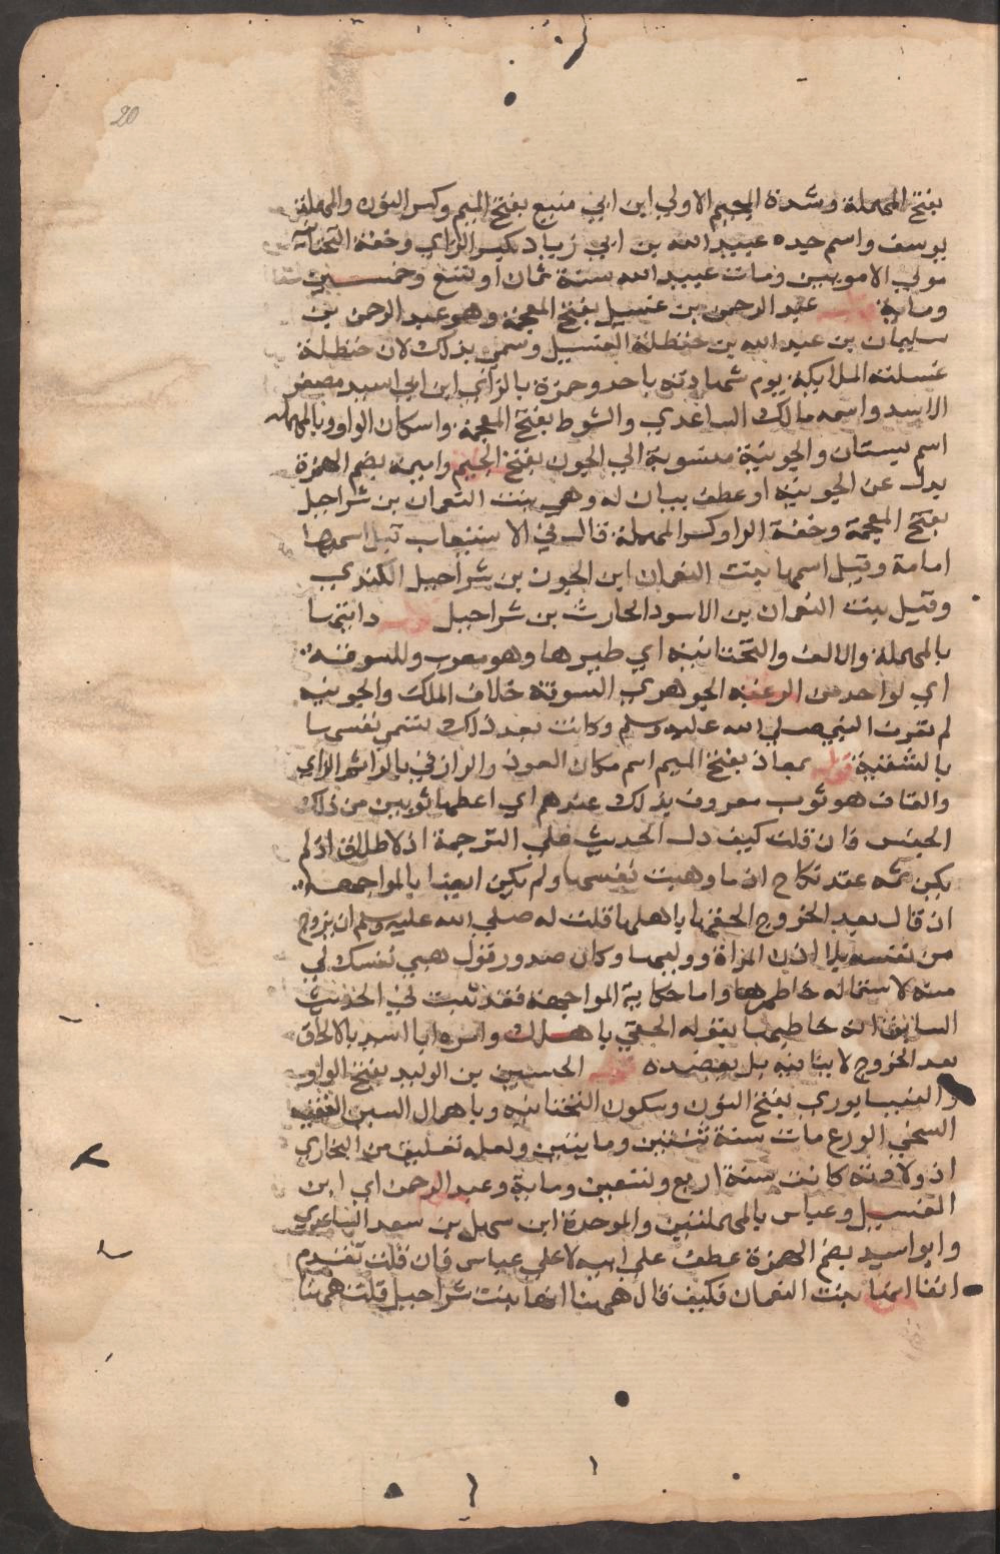 20
بفتح المهملة وشدة الجيم الاولي ابن ابي منيع بفتح الميم وكسر النون والمهملة
يوسف واسم جده عبيد الله بن ابي زياد بكسر الزاي وخفة التحتانية
مولي الامويين ومات عبيد الله سنة ثمان او تسع وخمسين
وماية قوله عبد الرحمن بن غسيل بفتح المعجمة وهو عبد الرحمن بن
سليمان بن عبد الله بن حنظلة الغسيل وسمي بذلك لان حنظلة
غسلته الملايكة يوم شهادته باحد وحمزة بالزاي ابن ابي اسيد مصغر
الاسد واسمه مالك الساعدي والشوط بفتح المعجمة واسكان الواو وبالمهملة
اسم بستان والجونية منسوبة الي الجون بفتح الجيم واميمة بضم الهمزة
بدل عن الجونية او عطف بيان له وهي بنت النعمان بن شراحيل
بفتح المعجمة وخفة الرا وكسر المهملة قال في الاستيعاب قيل اسمها
امامة وقيل اسمها بنت النعمان ابن الجون بن شراحيل الكندي
وقيل بنت النعمان بن الاسود الحارث بن شراحيل قوله دايتها
بالمهملة والالف والتحتانية اي ظيرها وهو معرب وللسوقة
اي لواحد من الرعية الجوهري السوقة خلاف الملك والجونية
لم تعرف النبي صلي الله عليه وسلم وكانت بعد ذلك تسمي نفسها
بالشقية قوله بمعاذ بفتح الميم اسم مكان العوذ والرازقي بالرا ثم الزاي
والقاف هو ثوب معروف بذلك عندهم اي اعطها ثوبين من ذلك
الجنس فان قلت كيف دل الحديث علي الترجمة اذ لا طلاق اذ لم
يكن ثمه عقد نكاح اذ ما وهبت نفسها ولم يكن ايضا بالمواجهة
اذ قال بعد الخروج الحقها باهلها قلت له صلي الله عليه وسلم ان يزوج
من نفسه بلا اذن المراة ووليها وكان صدور قول هبي نفسك لي
منه لاستمالة خاطرها واما حكاية المواجهة فقد ثبت في الحديث
السابق انه خاطبها بقوله الحقي باهلك وامره ابا اسيد بالالحاق
بعد الخروج لا ينافيه بل يعضده قوله الحسين بن الوليد بفتح الواو
والنيسابوري بفتح النون وسكون التحتانية وباهمال السين الفقيه
السخي الورع مات سنة ثنتين ومايتين ولعله تعليق من البخاري
اذ ولادته كانت سنة اربع وتسعين وماية وعبد الرحمن اي ابن
الغسيل وعباس بالمهملتين والموحدة ابن سهل بن سعد الساعدي
وابو اسيد بضم الهمزة عطف علي ابيه لا علي عباس فان قلت تقدم
انفا انها بنت النعمان فكيف قال ههنا انها بنت شراحيل قلت ههنا